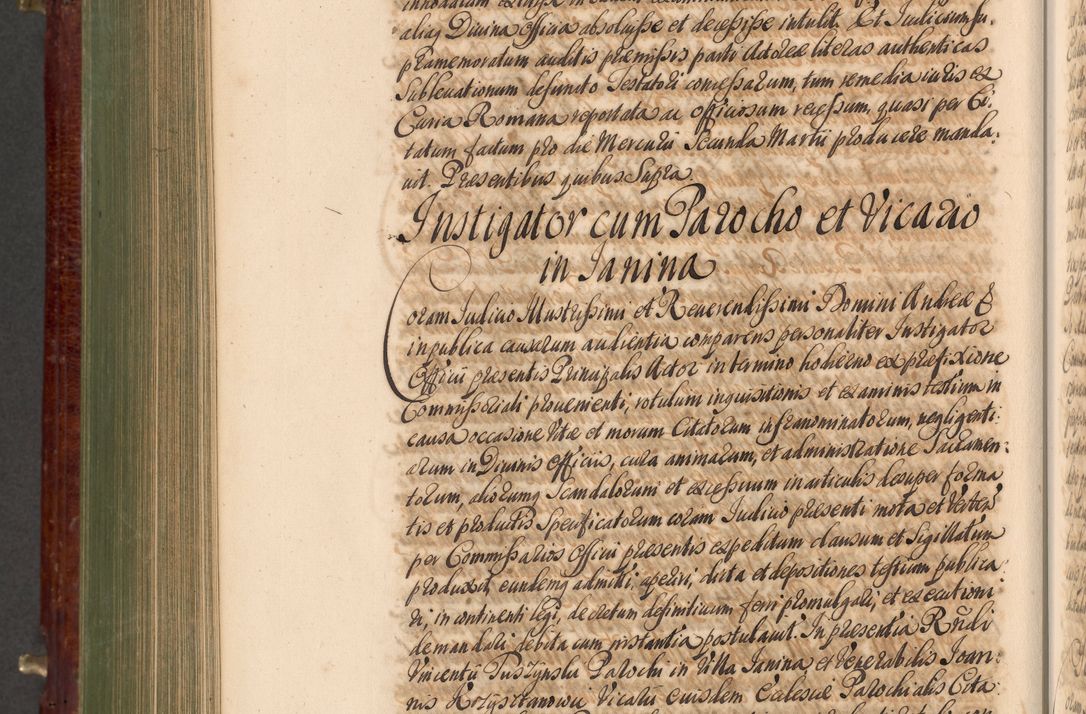 aliaq Divina Officia absoluisse et decessisse intulit. Et Judicium su-
pramemoratum auditis præmissis parti Actoreæ literas authenticas
Subleuationum defuncto Testatori concessarum, tum remedia iuris ex
Curia Romana reportata ac officiosum recessum, quasi per Ci-
tatum factum pro die Mercurii Secunda Martii producere manda-
uit. Præsentibus quibus Supra
Instigator cum Parocho et Vicario
in Janina
Coram Judicio Illustrissimi et Reuerendissimi Domini Andreæ &
in publica causarum audientia comparens personaliter Instigator
Officii præsentis Principalis Actor in termino hodierno ex præfixione
Commissoriali prouenienti, rotulum inquisitionis et examinis testium in
causa occasione Vitæ et morum Citatorum infranominatorum, negligenti-
arum in Diuinis Officiis, cura animarum, et administratione Sacramen-
torum, aliorumq Scandalorum et excessuum in articulis desuper forma
tis et productis Specificatorum coram Judicio præsenti mota et Verten
per Commissarios Officii præsentis expeditum clausum et Sigillatum
produxit, eundemq admitti, aperiri, dicta et depositiones testium publica
ri, in continenti legi, decretum definitiuum ferri promulgari, et executioni
demandari debita cum instantia postulauit. In præsentia Rndi
Vincentii Puszynski Parochi in Villa Janina et Venerabilis Joan-
nis Krzysztanowic Vicarii eiusdem Ecclesiæ Parochialis Cita-